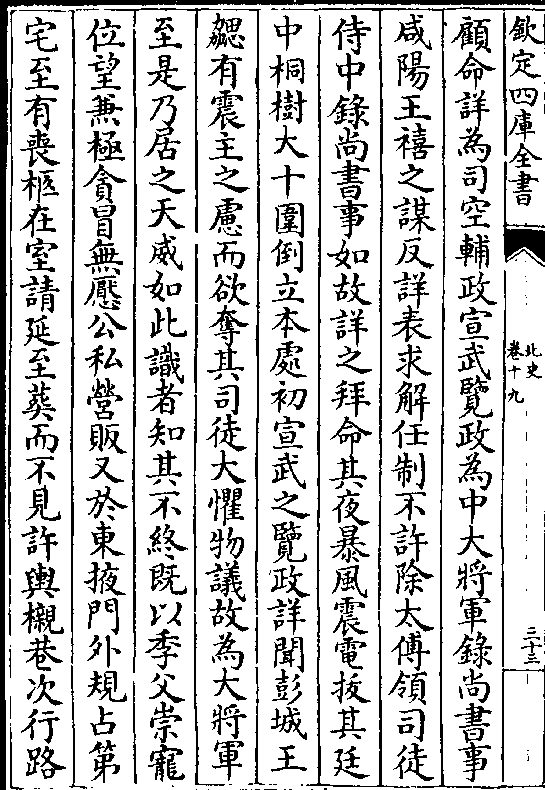 欽定四庫全書
北史
卷十九
三十三
顧命詳為司空輔政宣武覽政為中大將軍錄尚書事
咸陽王禧之謀反詳表求解任制不許除太傅領司徒
侍中錄尚書事如故詳之拜命其夜暴風震電拔其廷
中桐樹大十圍倒立本處初宣武之覽政詳聞彭城王
勰有震主之慮而欲奪其司徒大懼物議故為大將軍
至是乃居之天威如此識者知其不終既以季父崇寵
位望兼極貪冒無懕公私營販又於東掖門外規占第
宅至有喪柩在室請延至葬而不見許輿櫬巷次行路